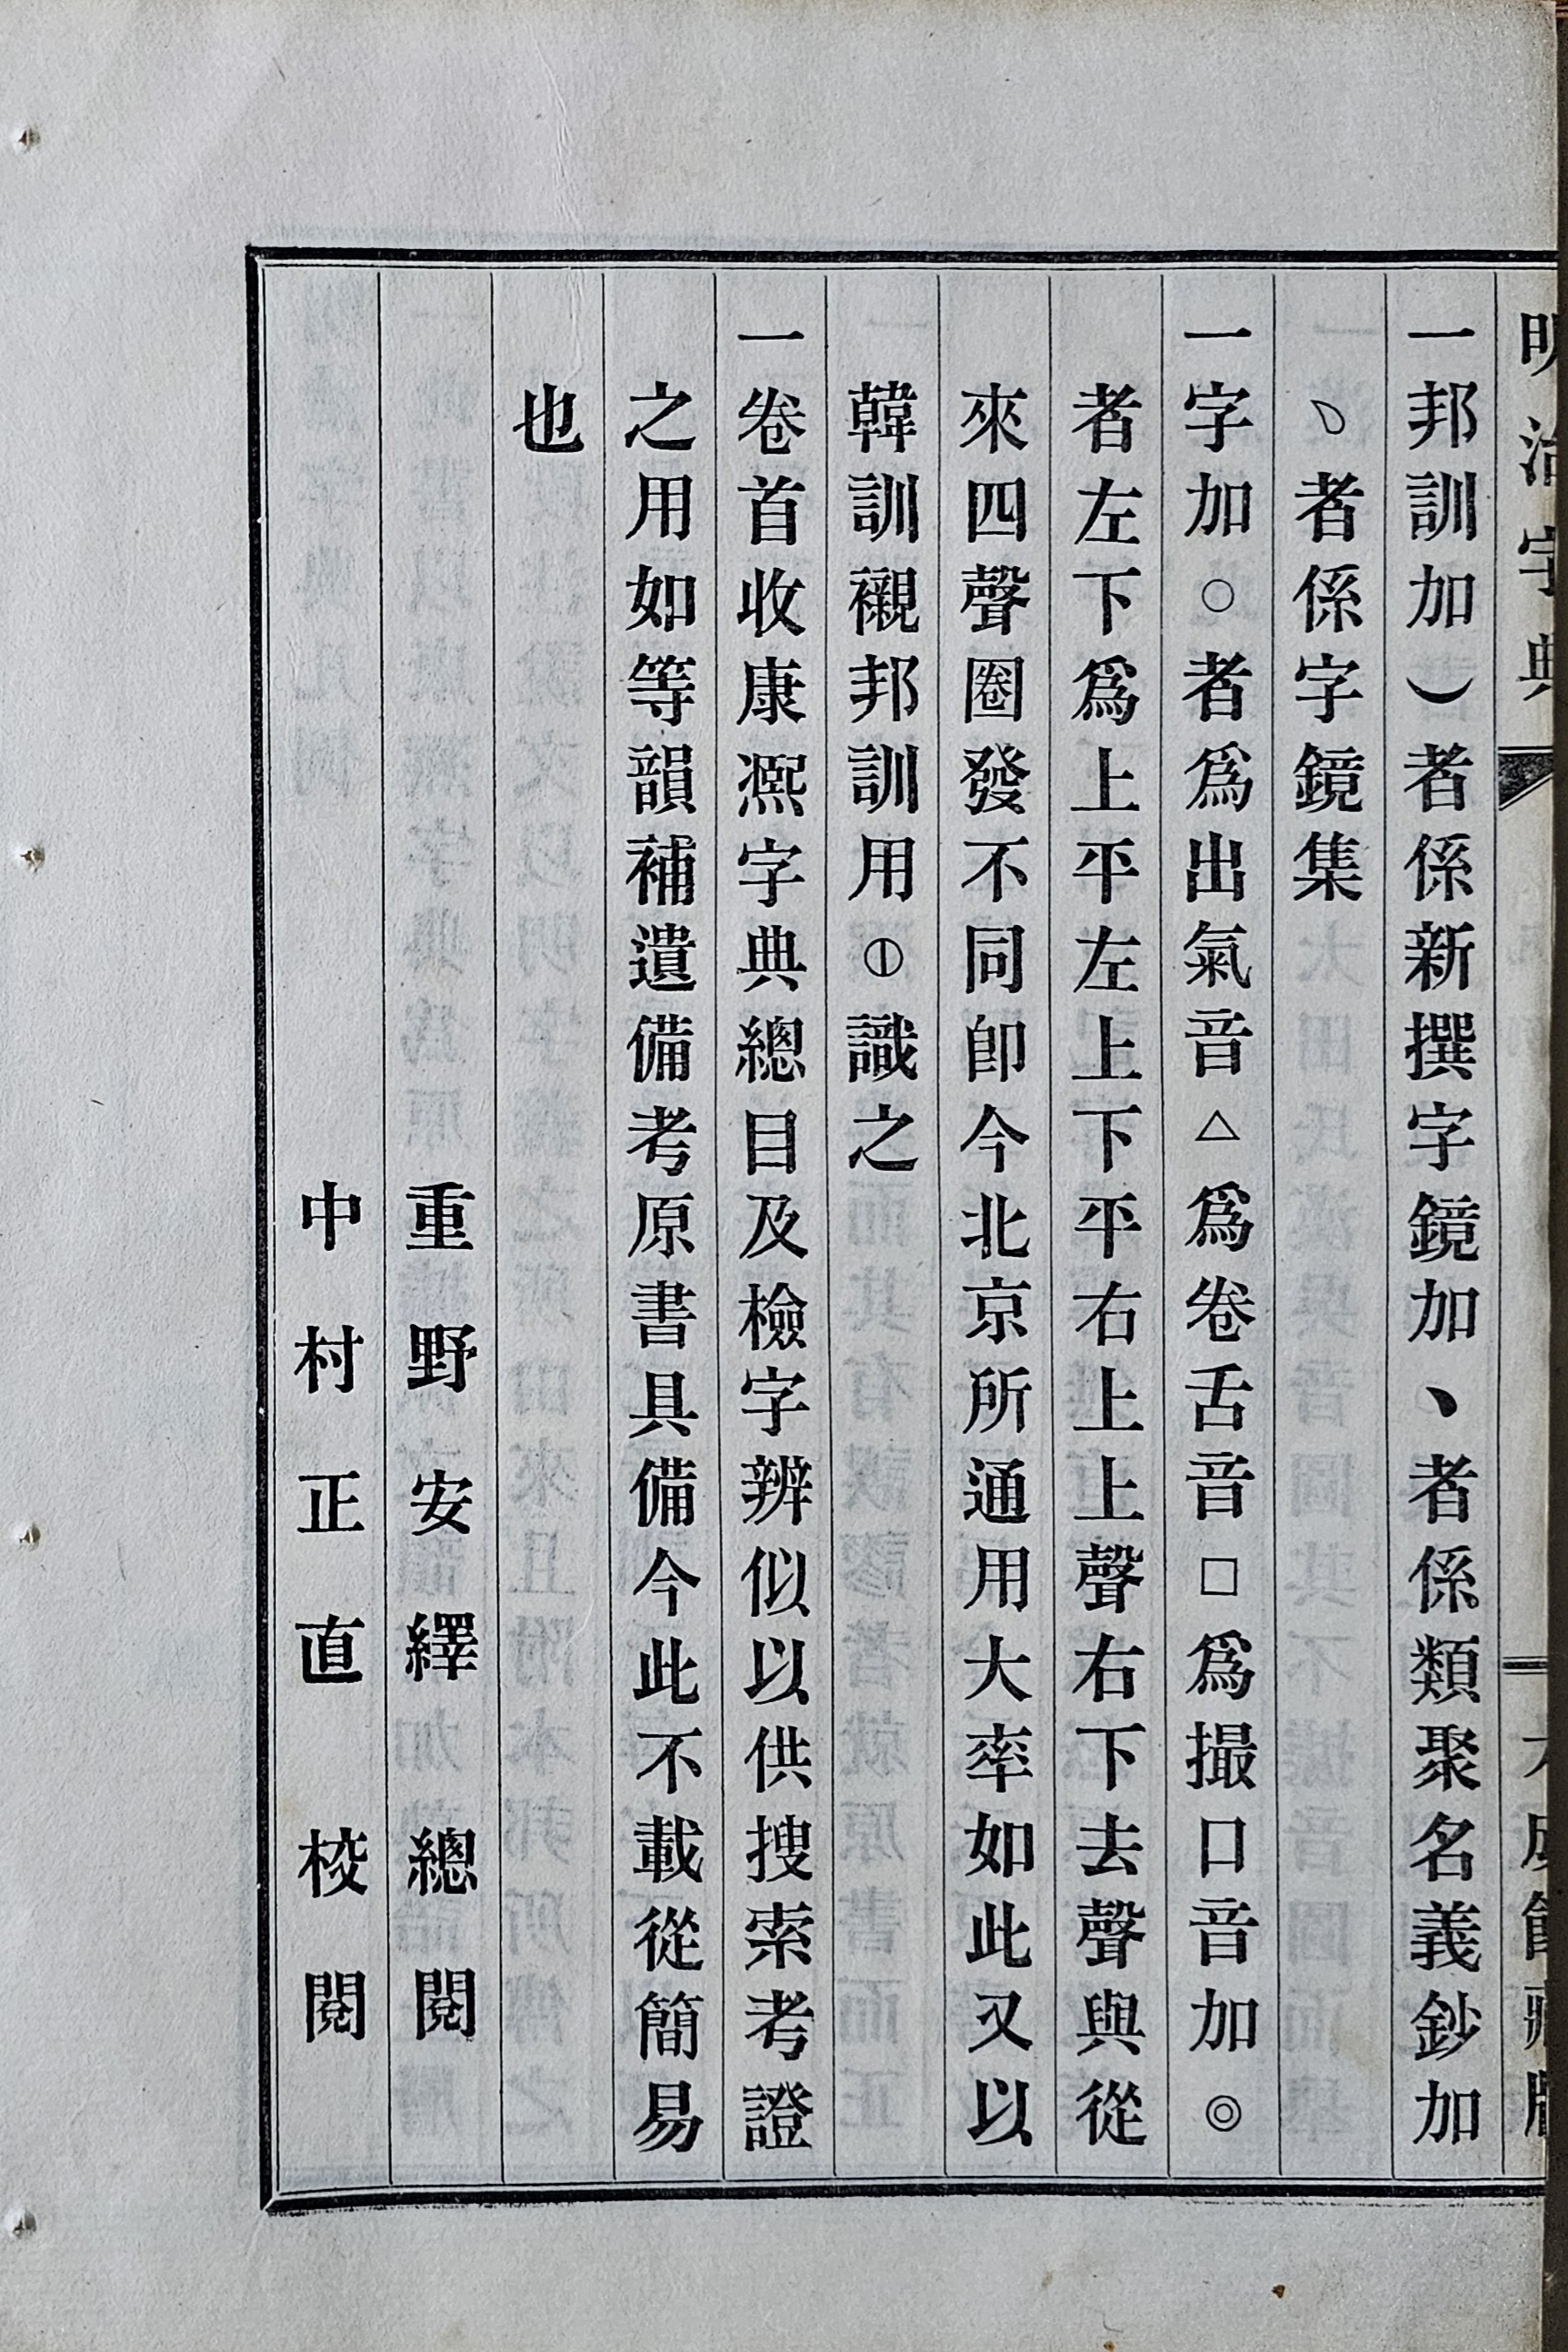 明治字典
一邦訓加)者係新撰字鏡加﹅者係類聚名義鈔加
﹆者係字鏡集
一字加○者爲出氣音△爲卷舌音□爲撮口音加◎
者左下爲上平左上下平右上上聲右下去聲與從
來四聲圈發不同卽今北京所通用大率如此又以
韓訓襯邦訓用⦶識之
一卷首收康熙字典總目及檢字辨似以供搜索考證
之用如等韻補遺備考原書具備今此不載從簡易
也
重野安繹 總閱
中村正直 校閱